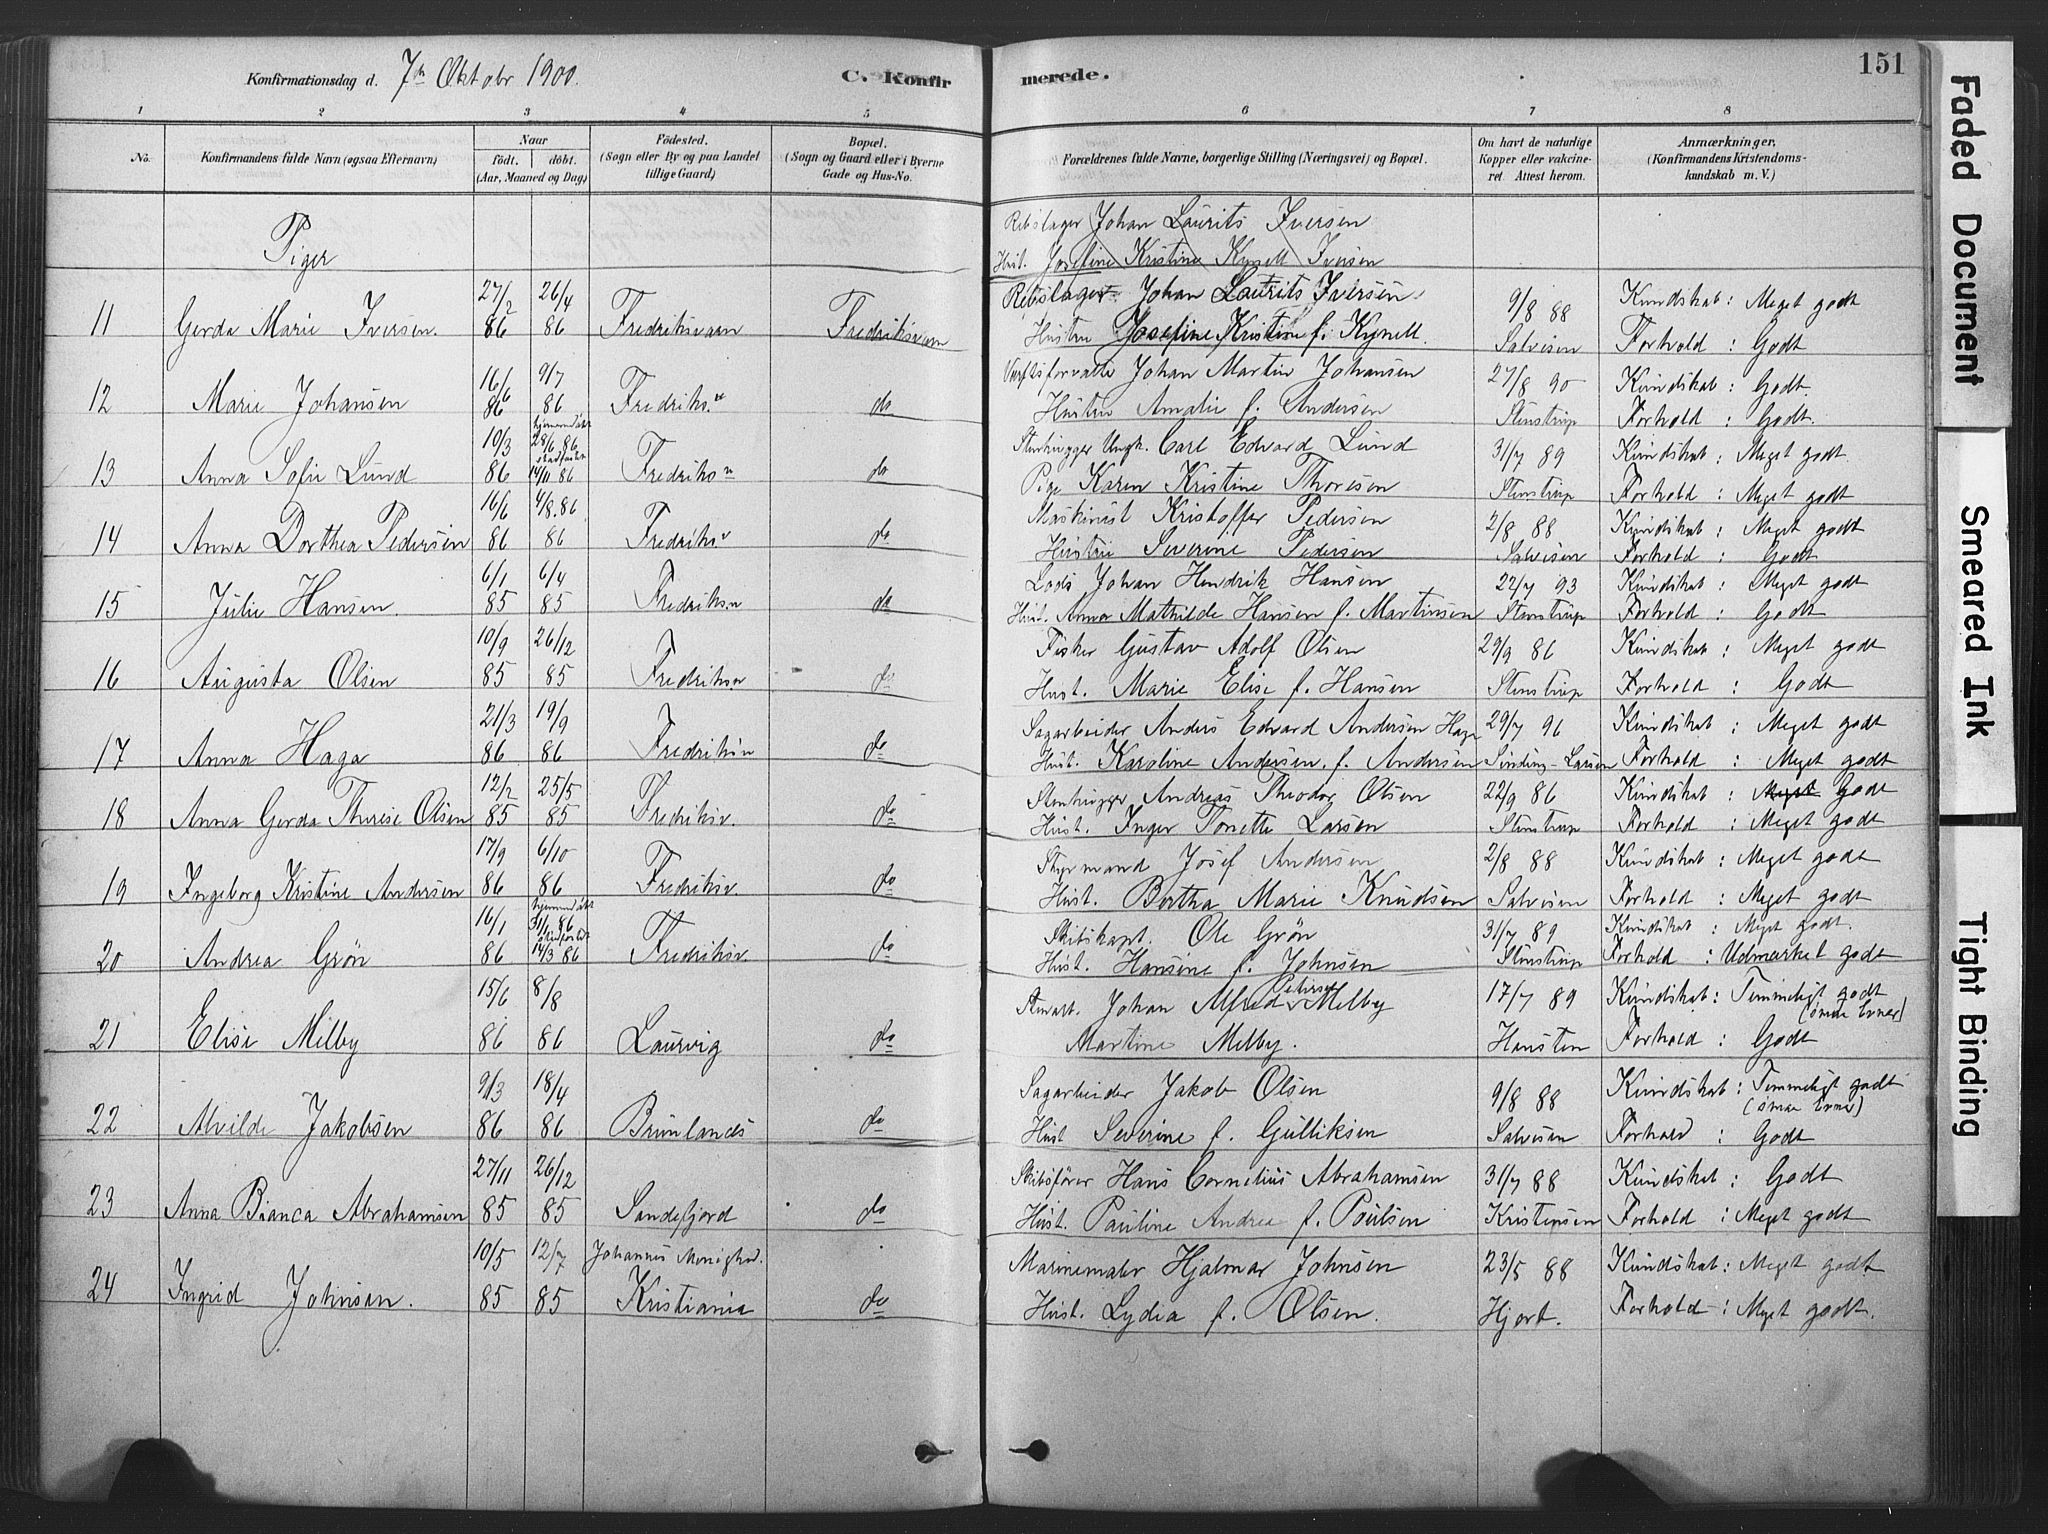 Konfirmationsdag d. 7de Oktobr 1900.
C. Konfir
merede.
151
1 2 3 4 5 6 7 8
No.
Konfirmandens fulde Navn (ogsaa Efternavn)
Naar
födt. döbt.
(Aar, Maaned og Dag)
Födested.
(Sogn eller By og paa Landet
tillige Gaard)
Bopæl.
(Sogn og Gaard eller i Byerne
Gade og Hus-No.
Forældrenes fulde Navne, borgerlige Stilling (Næringsvei) og Bopæl.
Om havt de naturlige
Kopper eller vakcine-
ret. Attest herom.
Anmærkninger,
(Konfirmandens Kristendoms-
kundskab m. V.)
Piger
Rebslager Johan Laurits Iversen
Hust. Josefine Kristine Kynell Iversen
11 Gerda Marie Iversen. 27/2 86 26/4 86 Fredriksværn Fredriksværn
Rebslager Johan Laurits Iversen 9/8 88 Kundskab: Meget godt
Hustru Josefine Kristine f. Kynell. Salvesen Forhold: Godt
12 Marie Johansen 16/6 86 9/7 86 Fredriks.n do
Johan Martin Johansen 27/8 90 Kundskab: Godt.
Hustru Amalie f. Andersen Stenstrup Forhold: Godt.
13 Anna Sofie Lund 10/3 86 hjemmedøbt 28/6 86 stadfæstet 14/11 86 Fredriksn do
Stenhugger Ungk. Carl Edvard Lund 31/7 89 Kundskab: Meget godt.
Pige Karen Kristine Thoresen Stenstrup Forhold: Meget godt
14 Anna Dorthea Pedersen 16/6 86 4/8.86 86 Fredriksv do
Maskinist Kristoffer Pedersen 2/8 88 Kundskab: Meget godt
Hustru Severine Pedersen Salvesen Forhold: Godt
15 Julie Hansen 6/1 85 6/4 85 Fredriksvn do
Lods Johan Hendrik Hansen 22/7 93 Kundskab: Meget godt
Hust. Anna Mathilde Hansen f. Martinsen Stenstrup Forhold: Godt
16 Augusta Olsen 10/9 85 26/12 85 Fredriksvn do
Fisker Gustav Adolf Olsen 29/9 86 Kundskab: Meget godt
Hust. Marie Elise f. Hansen Stenstrup Forhold: Godt
17 Anna Haga 21/3 86 19/9 86 Fredriksvn do
Sagarbeider Anders Edvard Andersen Haga 29/7 96 Kundskab: Meget godt
Hust. Karoline Andersen. f. Andersen Sinding-Larsen Forhold: Meget godt
18 Anna Gerda Therese Olsen 12/2 85 25/5 85 Fredriksv. do
Stenhugger Andreas Theodor Olsen 22/9 86 Kundskab: Meget Godt
Hust. Inger Tonette Larsen Stenstrup Forhold: Meget godt
19 Ingeborg Kristine Andersen 17/9 86 6/10 86 Fredriksv. do
Styrmand Josef Andersen 2/8 88 Kundskab: Meget godt
Hust. Bertha Marie Knudsen Salvesen Forhold: Meget godt
20 Andrea Grøn 16/1 86 hjemmedøbt 31/1 86 stadfæstet 14/3 86 Fredriksv. do
Skibskapt. Ole Grøn 31/7 89 Kundskab: Meget godt.
Hust. Hansine f. Johnsen Stenstrup Forhold: Udmærket godt
21 Elise Melby 15/6 86 8/8 86 Laurvig do
Johan Alfred Petersen Melby 17/7 89 Kundskab: Temmeligt godt (smaa Evner)
Martine Melby. Hansten Forhold: Godt
22 Alvilde Jakobsen 9/3 86 18/4 86 Brunlanæs do
Sagarbeider Jakob Olsen 9/8 88 Kundskab: Temmeligt godt (smaa Evner)
Hust Severine f. Gulliksen Salvesen Forhold: Godt
23 Anna Bianca Abrahamsen 27/11 85 26/12 85 Sandefjord do
Skibsfører Hans Cornelius Abrahamsen 31/7 88 Kundskab: Godt
Hust. Pauline Andrea f. Poulsen Kristensen Forhold: Meget godt
24 Ingrid Johnsen. 10/5 85 12/7 85 Johannes Menighed. Kristiania do
Marinemaler Hjalmar Johnsen 23/5 88 Kundskab: Meget godt
Hust. Lydia f. Olsen. Hjort. Forhold: Meget godt.
Faded Document
Smeared Ink
Tight Binding